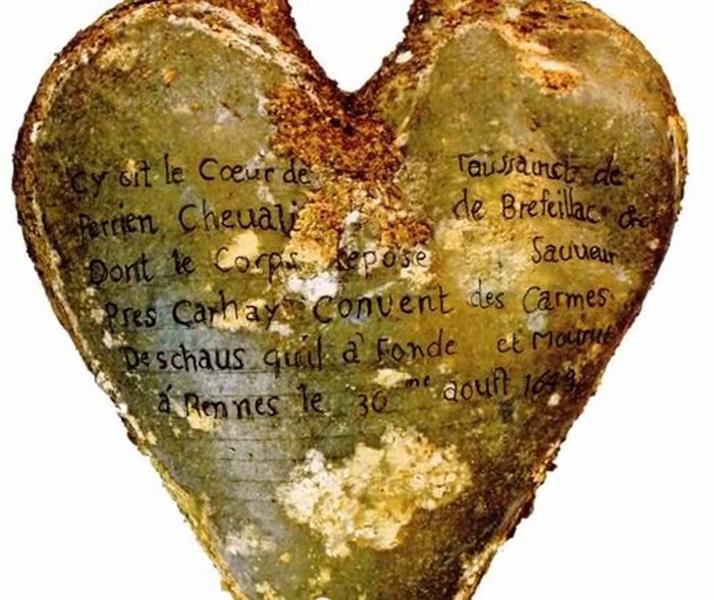 Cy Git le Cœur de Taussainct de
Perrien Cheuali de Brefeillac &c
Dont le Corps repose Sauueur
Pres Carhay Convent des Carmes
Deschaus quil à Fonde et Mourut
á Rennes le 30 me aoust 1649